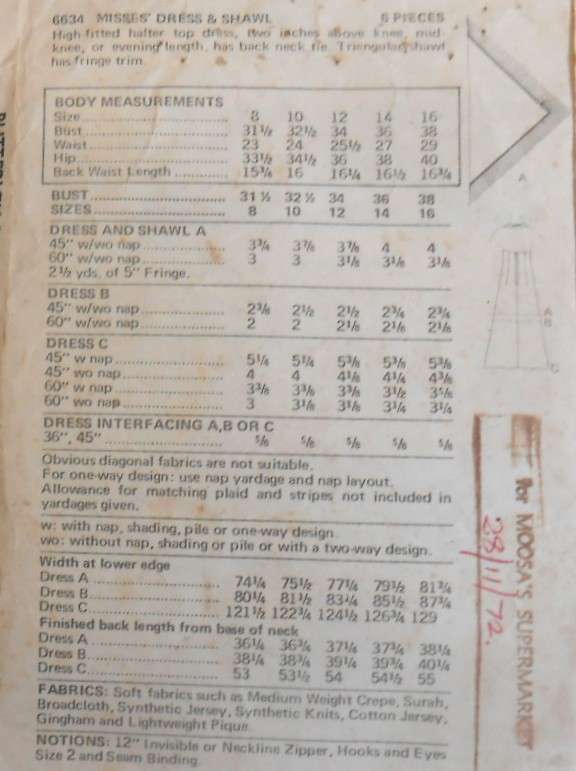 6634 MISSES' DRESS & SHAWL 6 PIECES
High fitted halter top dress, two inches above knee, mid-
knee, or evening length, has back neck tie. Triangular shawl
has fringe trim.
BODY MEASUREMENTS
Size 8 10 12 14 16
Bust 31½ 32½ 34 36 38
Waist 23 24 25½ 27 29
Hip 33½ 34½ 36 38 40
Back Waist Length 15¾ 16 16¼ 16½ 16¾
BUST 31 ½ 32 ½ 34 36 38
SIZES 8 10 12 14 16
DRESS AND SHAWL A
45" w/wo nap 3¾ 3⅞ 3⅞ 4 4
60" w/wo nap 3 3 3⅛ 3⅛ 3⅛
2½ yds. of 5" Fringe.
DRESS B
45" w/wo nap 2⅜ 2½ 2½ 2¾ 2¾
60" w/wo nap 2 2 2⅛ 2⅛ 2⅛
DRESS C
45" w nap 5¼ 5¼ 5⅜ 5⅜ 5⅜
45" wo nap 4 4 4⅛ 4¼ 4⅜
60" w nap 3⅜ 3⅜ 3⅜ 3½ 3⅝
60" wo nap 3 3⅛ 3⅛ 3¼ 3¼
DRESS INTERFACING A,B OR C
36", 45" ⅝ ⅝ ⅝ ⅝ ⅝
Obvious diagonal fabrics are not suitable.
For one-way design: use nap yardage and nap layout.
Allowance for matching plaid and stripes not included in
yardages given.
w: with nap, shading, pile or one-way design.
wo: without nap, shading or pile or with a two-way design.
Width at lower edge
Dress A 74¼ 75½ 77¼ 79½ 81¾
Dress B 80¼ 81½ 83¼ 85½ 87¾
Dress C 121½ 122¾ 124½ 126¾ 129
Finished back length from base of neck
Dress A 36¼ 36¾ 37¼ 37¾ 38¼
Dress B 38¼ 38¾ 39¼ 39¾ 40¼
Dress C 53 53½ 54 54½ 55
FABRICS: Soft fabrics such as Medium Weight Crepe, Surah,
Broadcloth, Synthetic Jersey, Synthetic Knits, Cotton Jersey,
Gingham and Lightweight Pique.
NOTIONS: 12" Invisible or Neckline Zipper, Hooks and Eyes
Size 2 and Seam Binding.
A
A B
C
for MOOSA'S SUPERMARKET
28/11/72.